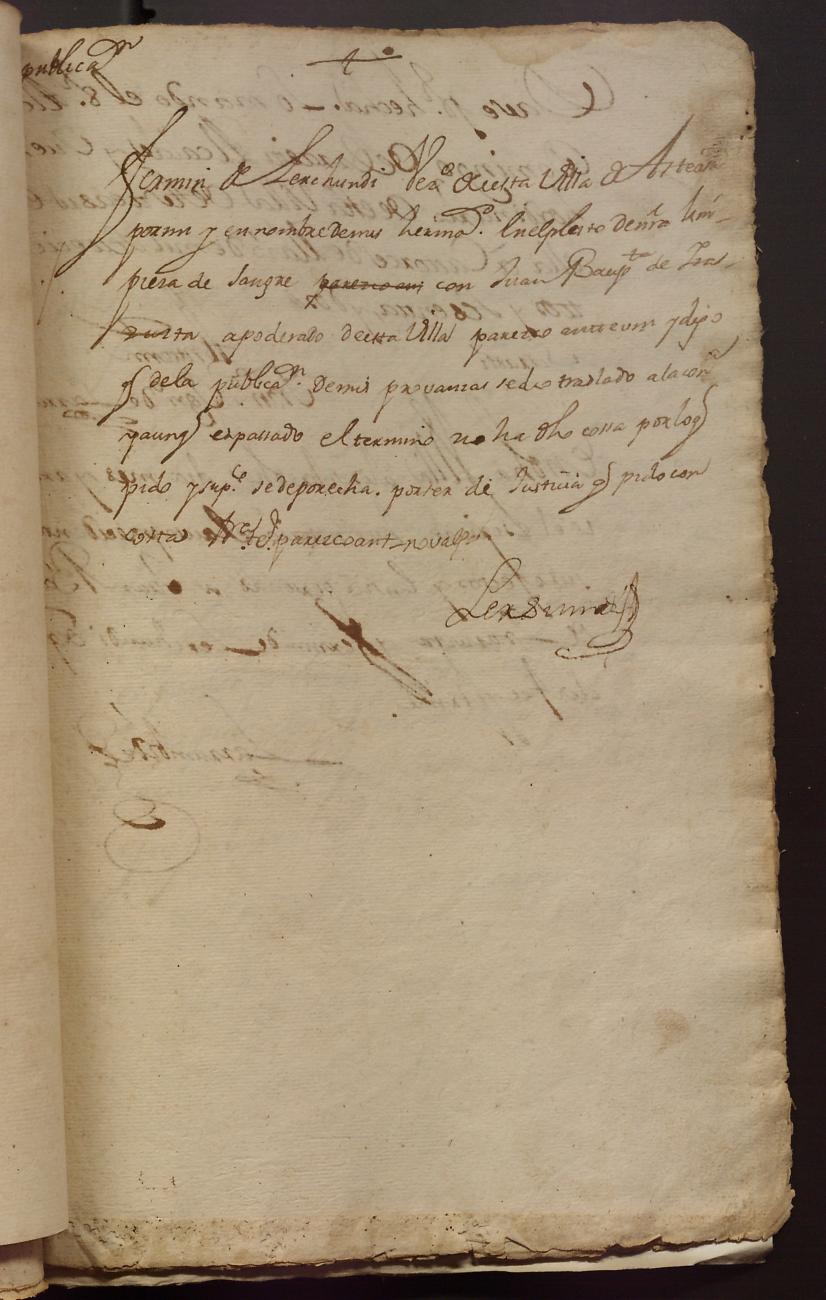 publicaon
+
Fermin de Lerchundi Veco de esta Villa de Arteaga
por mi y en nombre de mis hermos. En el pleito de nra lim-
pieza de sangre parezco ant con Juan Baupta de
apoderado de esta Villa parezco ante vm y digo
q de la publicaon. de mis provanzas se dio traslado a la conra
y aunq es passado el termino no ha dho cossa por log
pido y supco se de por echa. por ser de Justicia q pido con
costas parezco ant no valga
Lerchundi